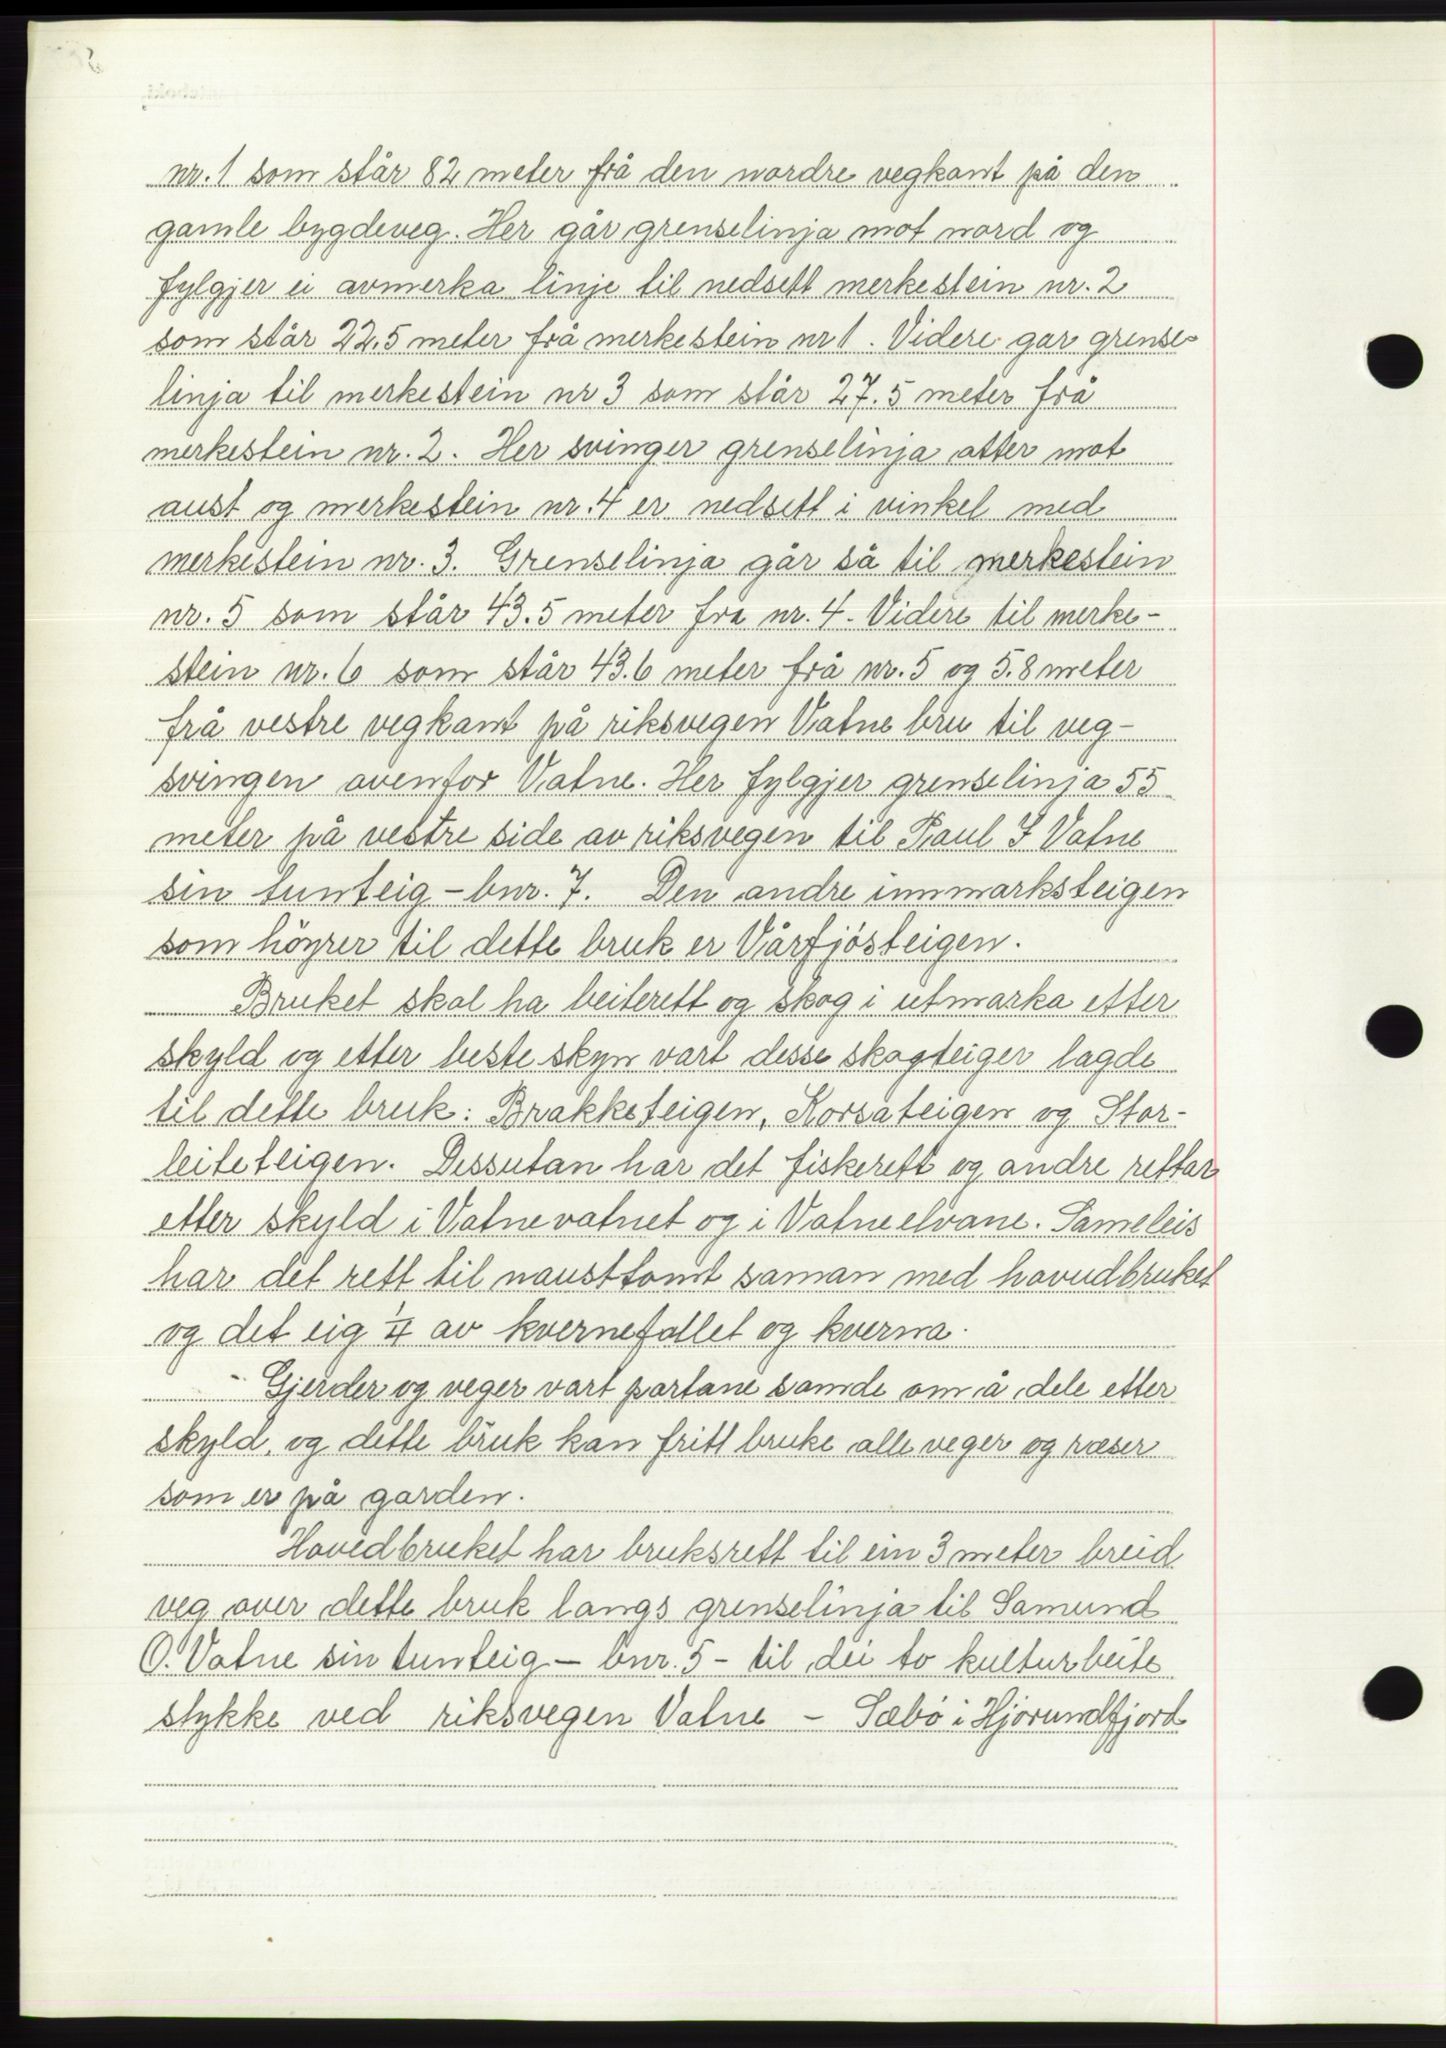 nr. 1 som står 82 meter frå den nordre vegkant på den
gamle bygdeveg. Her går grenselinja mot nord og
fylgjer ei avmerka linje til nedsett merkestein nr. 2
som står 22.5 meter frå merkestein nr 1. Videre gar grense-
linja til merkestein nr 3 som står 27.5 meter frå
merkestein nr. 2. Her svinger grenselinja atter mot
aust og merkestein nr. 4 er nedsett i vinkel med
merkestein nr. 3. Grenselinja går så til merkestein
nr. 5 som står 43.5 meter fra nr. 4. Videre til merke-
stein nr. 6 som står 43.6 meter frå nr. 5 og 5.8 meter
frå vestre vegkant på riksvegen Vatne bru til veg-
svingen ovenfor Vatne. Her fylgjer grenselinja 55
meter på vestre side av riksvegen til Paul J Vatne
sin tunteig - bnr. 7. Den andre innmarksteigen
som höyrer til dette bruk er Vårfjósteigen.
Bruket skal ha beiterett og skog i utmarka etter
skyld og etter beste skyn vart desse skogteiger lagde
til dette bruk: Brakketeigen, Korsateigen og Stor-
leiteteigen. Dessutan har det fiskerett og andre rettar
etter skyld i Vatnevatnet og i Vatneelvane. Sameleis
har det rett til nausttomt saman med hovudbruket
og det eig 1/4 av kvernefallet og kverna.
Gjerder og veger vart partane samde om å dele etter
skyld, og dette bruk kan fritt bruke alle veger og ræser
som er på garden.
Hovedbruket har bruksrett til ein 3 meter breid
veg over dette bruk langs grenselinja til Samund
O. Vatne sin tunteig - bnr. 5 - til dei to kulturbeite
stykke ved riksvegen Vatne - Sæbö i Hjörundfjord